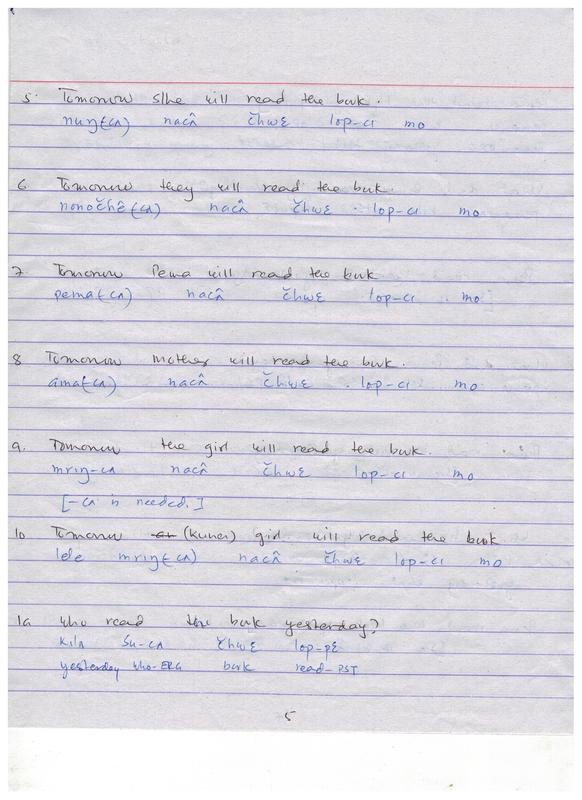 5. Tomorrow s/he will read the book.
nuŋ(-cʌ) nacʌ̂ čhwɛ lop-cɪ mo
6. Tomorrow they will read the book.
nonočhê(-cʌ) nacʌ̂ čhwɛ lop-cɪ mo
7. Tomorrow Pema will read the book
pema(-cʌ) nacʌ̂ čhwɛ lop-cɪ mo
8 Tomorrow mother will read the book.
ama(-cʌ) nacʌ̂ čhwɛ lop-cɪ mo
9. Tomorrow the girl will read the book.
mrɪŋ-cʌ nacʌ̂ čhwɛ lop-cɪ mo
[-cʌ is needed.]
10 Tomorrow (kuner) girl will read the book
lele mrɪŋ(-cʌ) nacʌ̂ čhwɛ lop-cɪ mo
1a who read the book yesterday?
kilʌ su-cʌ čhwɛ lop-pɛ
yesterday who-ERG book read-PST
5